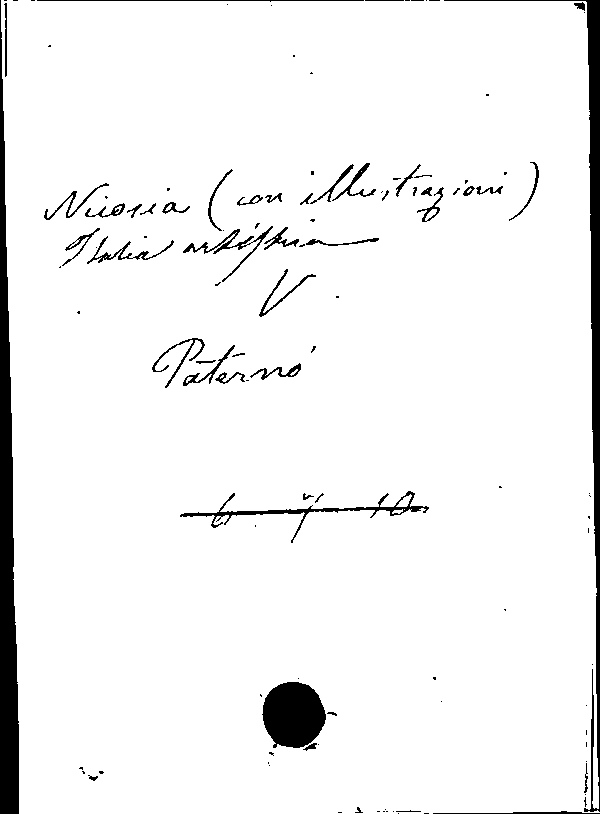 Nicosia (con illustrazioni)
Italia artistica
V
Paternò
6 7 10